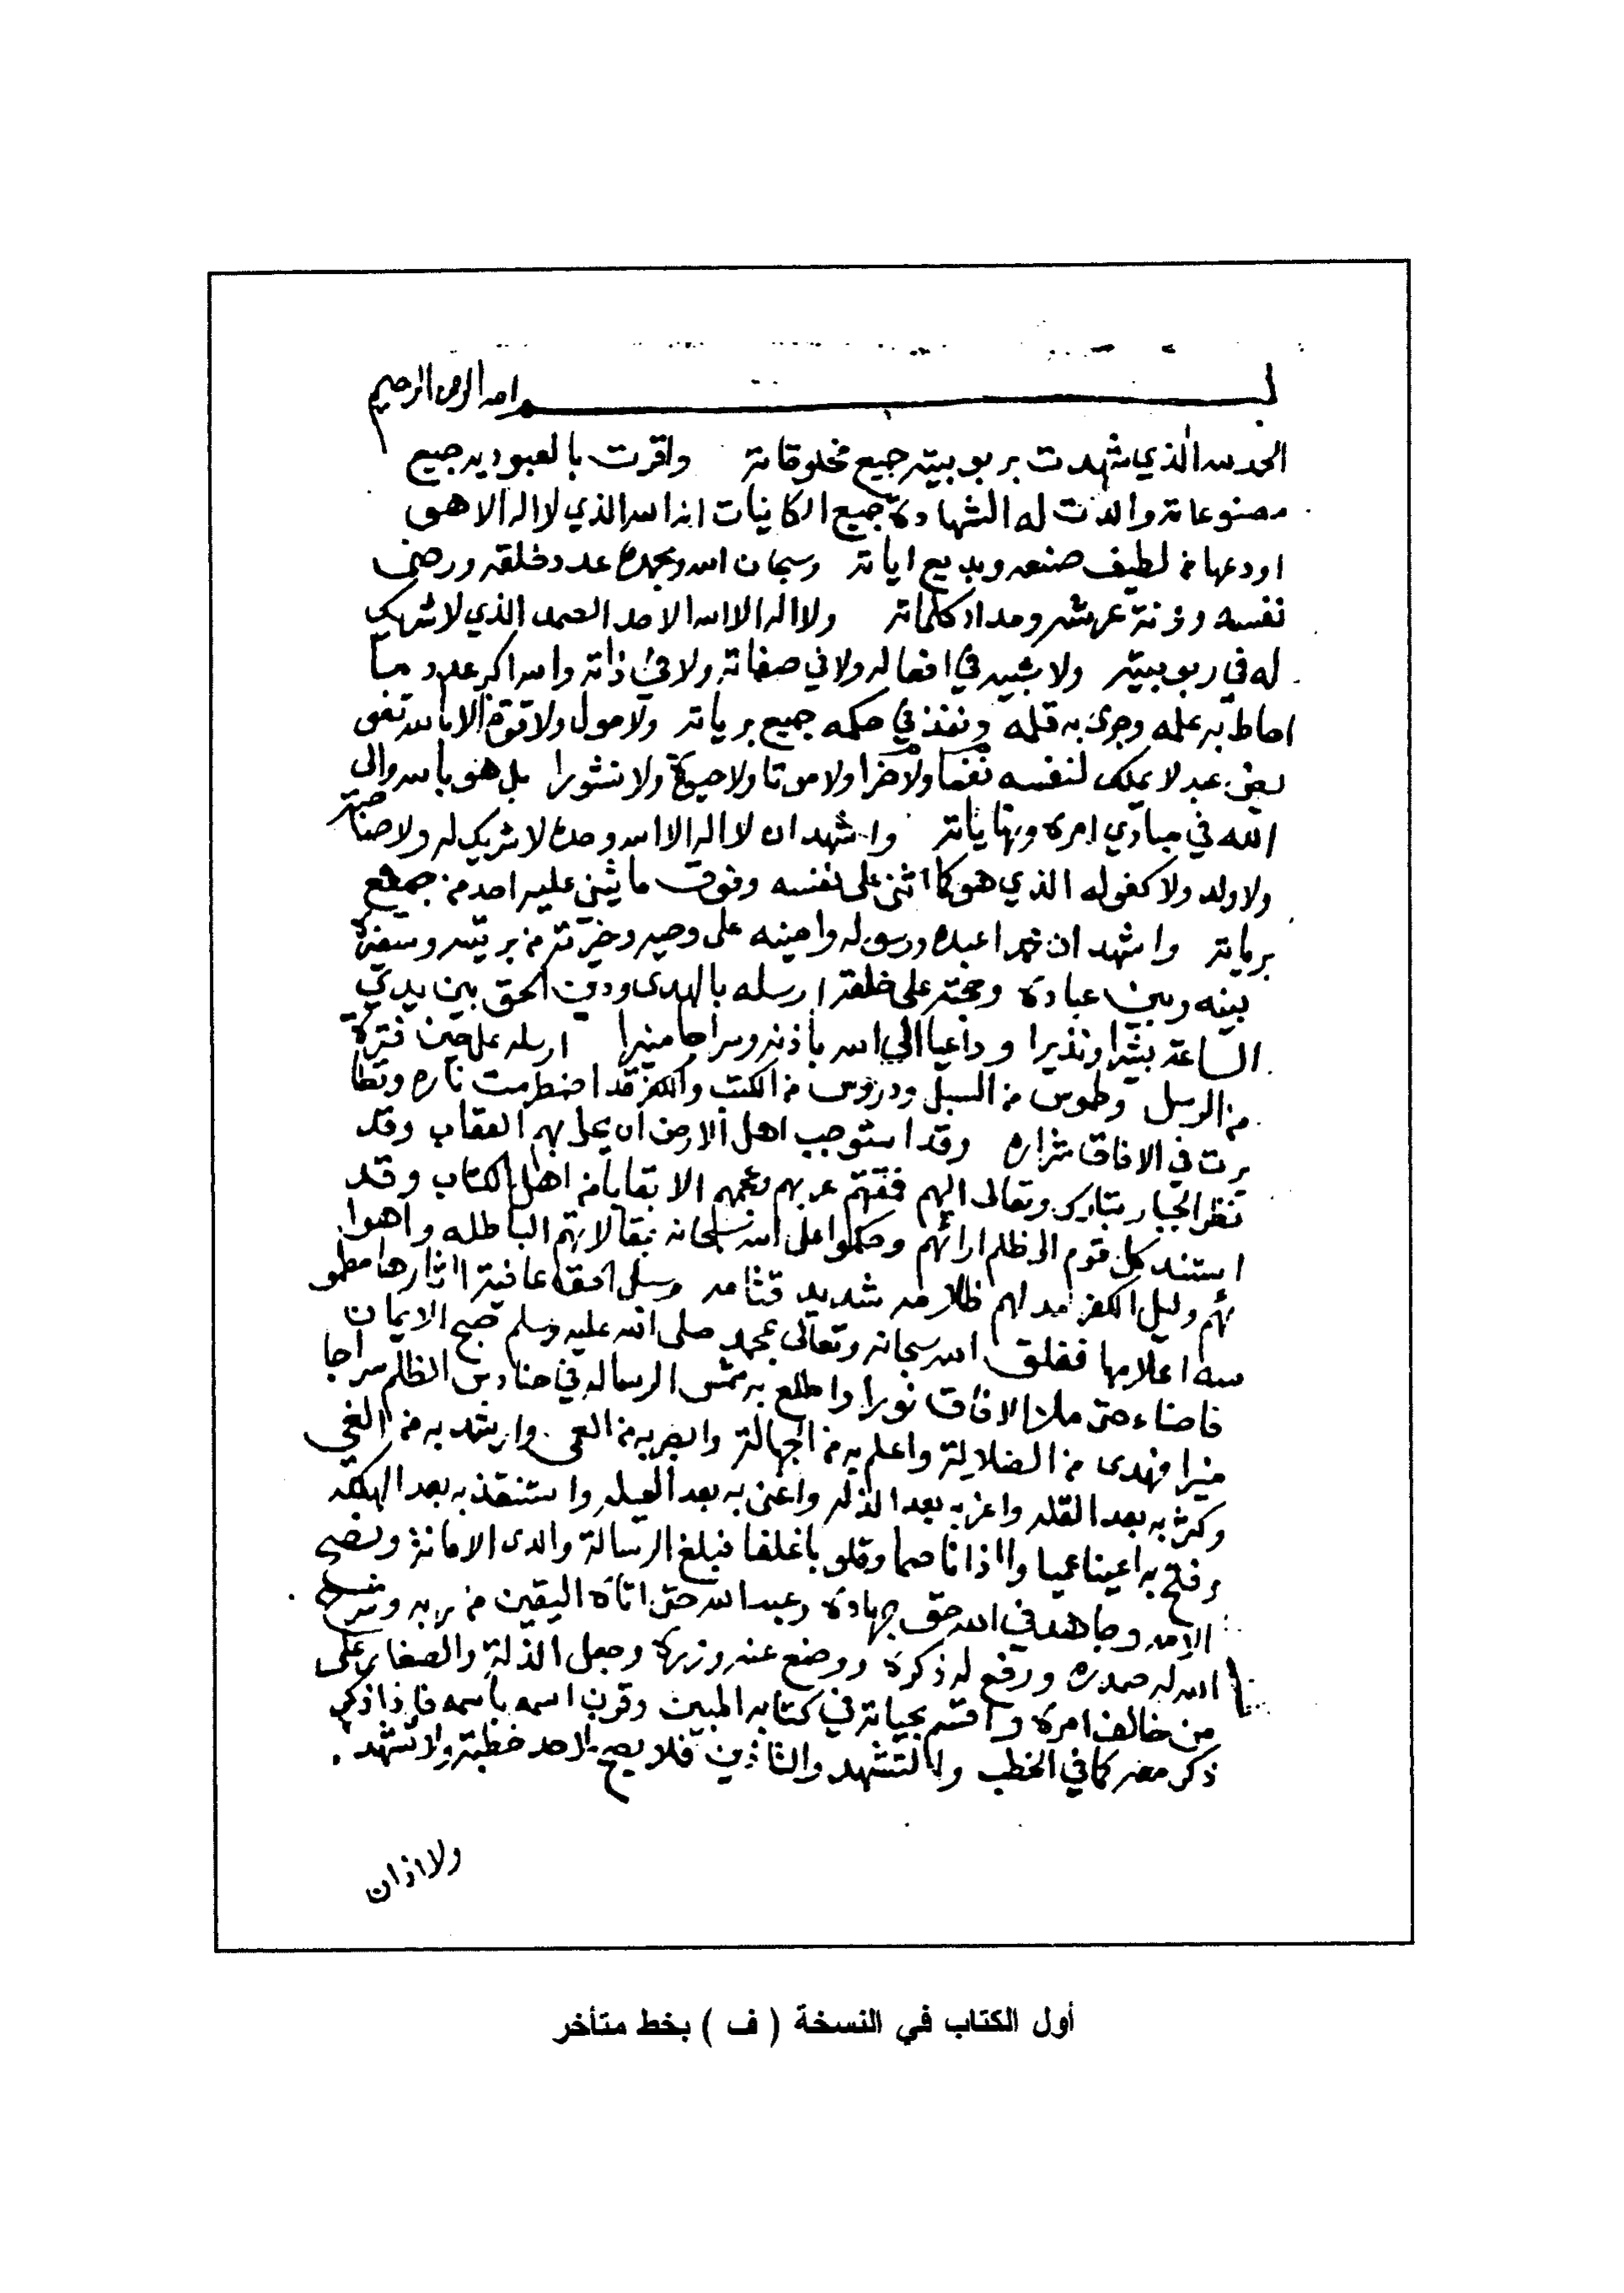 بسم الله الرحمن الرحيم
الحمد لله الذي شهدت بربوبيته جميع مخلوقاته واقرت بالعبوديه جميع
مصنوعاته وادت له الشهادة جميع الكائنات انه الله الذي لا اله الا هو
اودعها من لطيف صنعه وبديع اياته وسبحان الله وبحمده عدد خلقه ورضى
نفسه وزنة عرشه ومداد كلماته ولا اله الا الله الاحد الصمد الذي لا شريك
له في ربوبيته ولا شبيه في افعاله ولا في صفاته ولا في ذاته والله اكبر عدد ما
احاط به علمه وجرى به قلمه ونفذ في حكمه جميع برياته ولا حول ولا قوة الا بالله تفو
يض عبد لا يملك لنفسه نفعا ولا ضرا ولا موتا ولا حيوة ولا نشورا بل هو بالله والى
الله في مبادي امره ونهاياته واشهد ان لا اله الا الله وحده لا شريك له ولا صاحبة
ولا ولد ولا كفو له الذي هو كما اثنى على نفسه وفوق ما يثني عليه احد من جميع
برياته واشهد ان محمدا عبده ورسوله وامينه على وحيه وخيرته من بريته وسفيره
بينه وبين عباده وحجته على خلقه ارسله بالهدى ودين الحق بين يدي
الساعة بشيرا ونذيرا وداعيا الى الله باذنه وسراجا منيرا ارسله على حين فترة
من الرسل وطموس من السبل ودروس من الكتب والكفر قد اضطرمت ناره وتطا
يرت في الافاق شراره وقد استوجب اهل الارض ان يحل بهم العقاب وقد
نظر الجبار تبارك وتعالى اليهم فمقتهم عربهم وعجمهم الا بقايا من اهل الكتاب وقد
استند كل قوم الى ظلم ارائهم وحكموا على الله سبحانه بمقالاتهم الباطله واهوا
ئهم وليل الكفر مدلهم ظلامه شديد قتامه وسبل الحق عافية اثارها مطمو
سه اعلامها ففلق الله سبحانه وتعالى بمحمد صلى الله عليه وسلم صبح الايمان
فاضاء حتى ملا الافاق نورا واطلع به شمس الرساله في حنادس الظلم سراجا
منيرا فهدى من الضلالة واعلم به من الجهالة وابصر به من العمى وارشد به من الغي
وكثر به بعد القله واعز به بعد الذله واغنى به بعد العيله واستنقذ به بعد الهلكه
وفتح به اعينا عميا واذانا صما وقلوبا غلفا فبلغ الرسالة وادى الامانة ونصح
الامه وجاهد في الله حق جهاده وعبد الله حتى اتاه اليقين من ربه وشرح
الله له صدره ورفع له ذكره ووضع عنه وزره وجعل الذلة والصغار على
من خالف امره واقسم بحياته في كتابه المبين وقرن اسمه باسمه فاذا ذكر
ذكر معه كما في الخطب والتشهد والتاذين فلا يصح لاحد خطبة ولا تشهد
ولا اذان
أول الكتاب في النسخة ( ف ) بخط متأخر